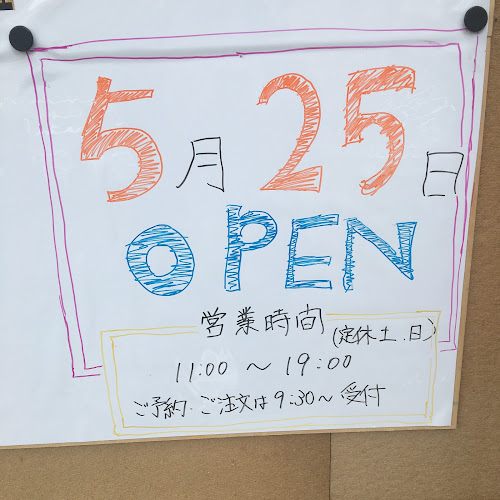 5月25日
OPEN
営業時間
(定休土.日)
11:00～19:00
ご予約.ご注文は9:30～受付